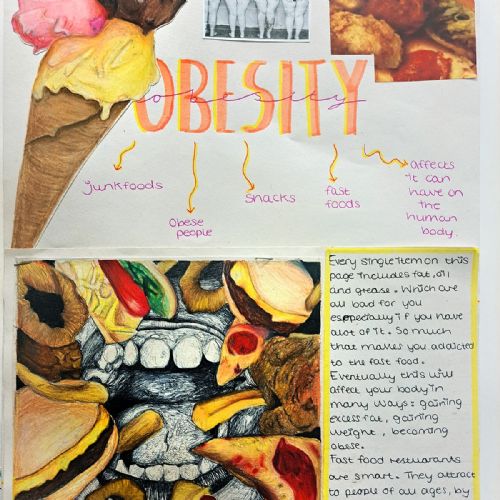 OBESITY
obesity
junkfoods
Obese
people
snacks
fast
foods
affects
it can
have on
the
human
body.
Every single item on this
page includes fat, oil
and grease. Which are
all bad for you
especially if you have
alot of it. So much
that makes you addicted
to the fast food.
Eventually this will
affect your body in
many ways: gaining
excess fat, gaining
weight, becoming
obese.
Fast food restuarants
are smart. They attract
to people of all ages, by